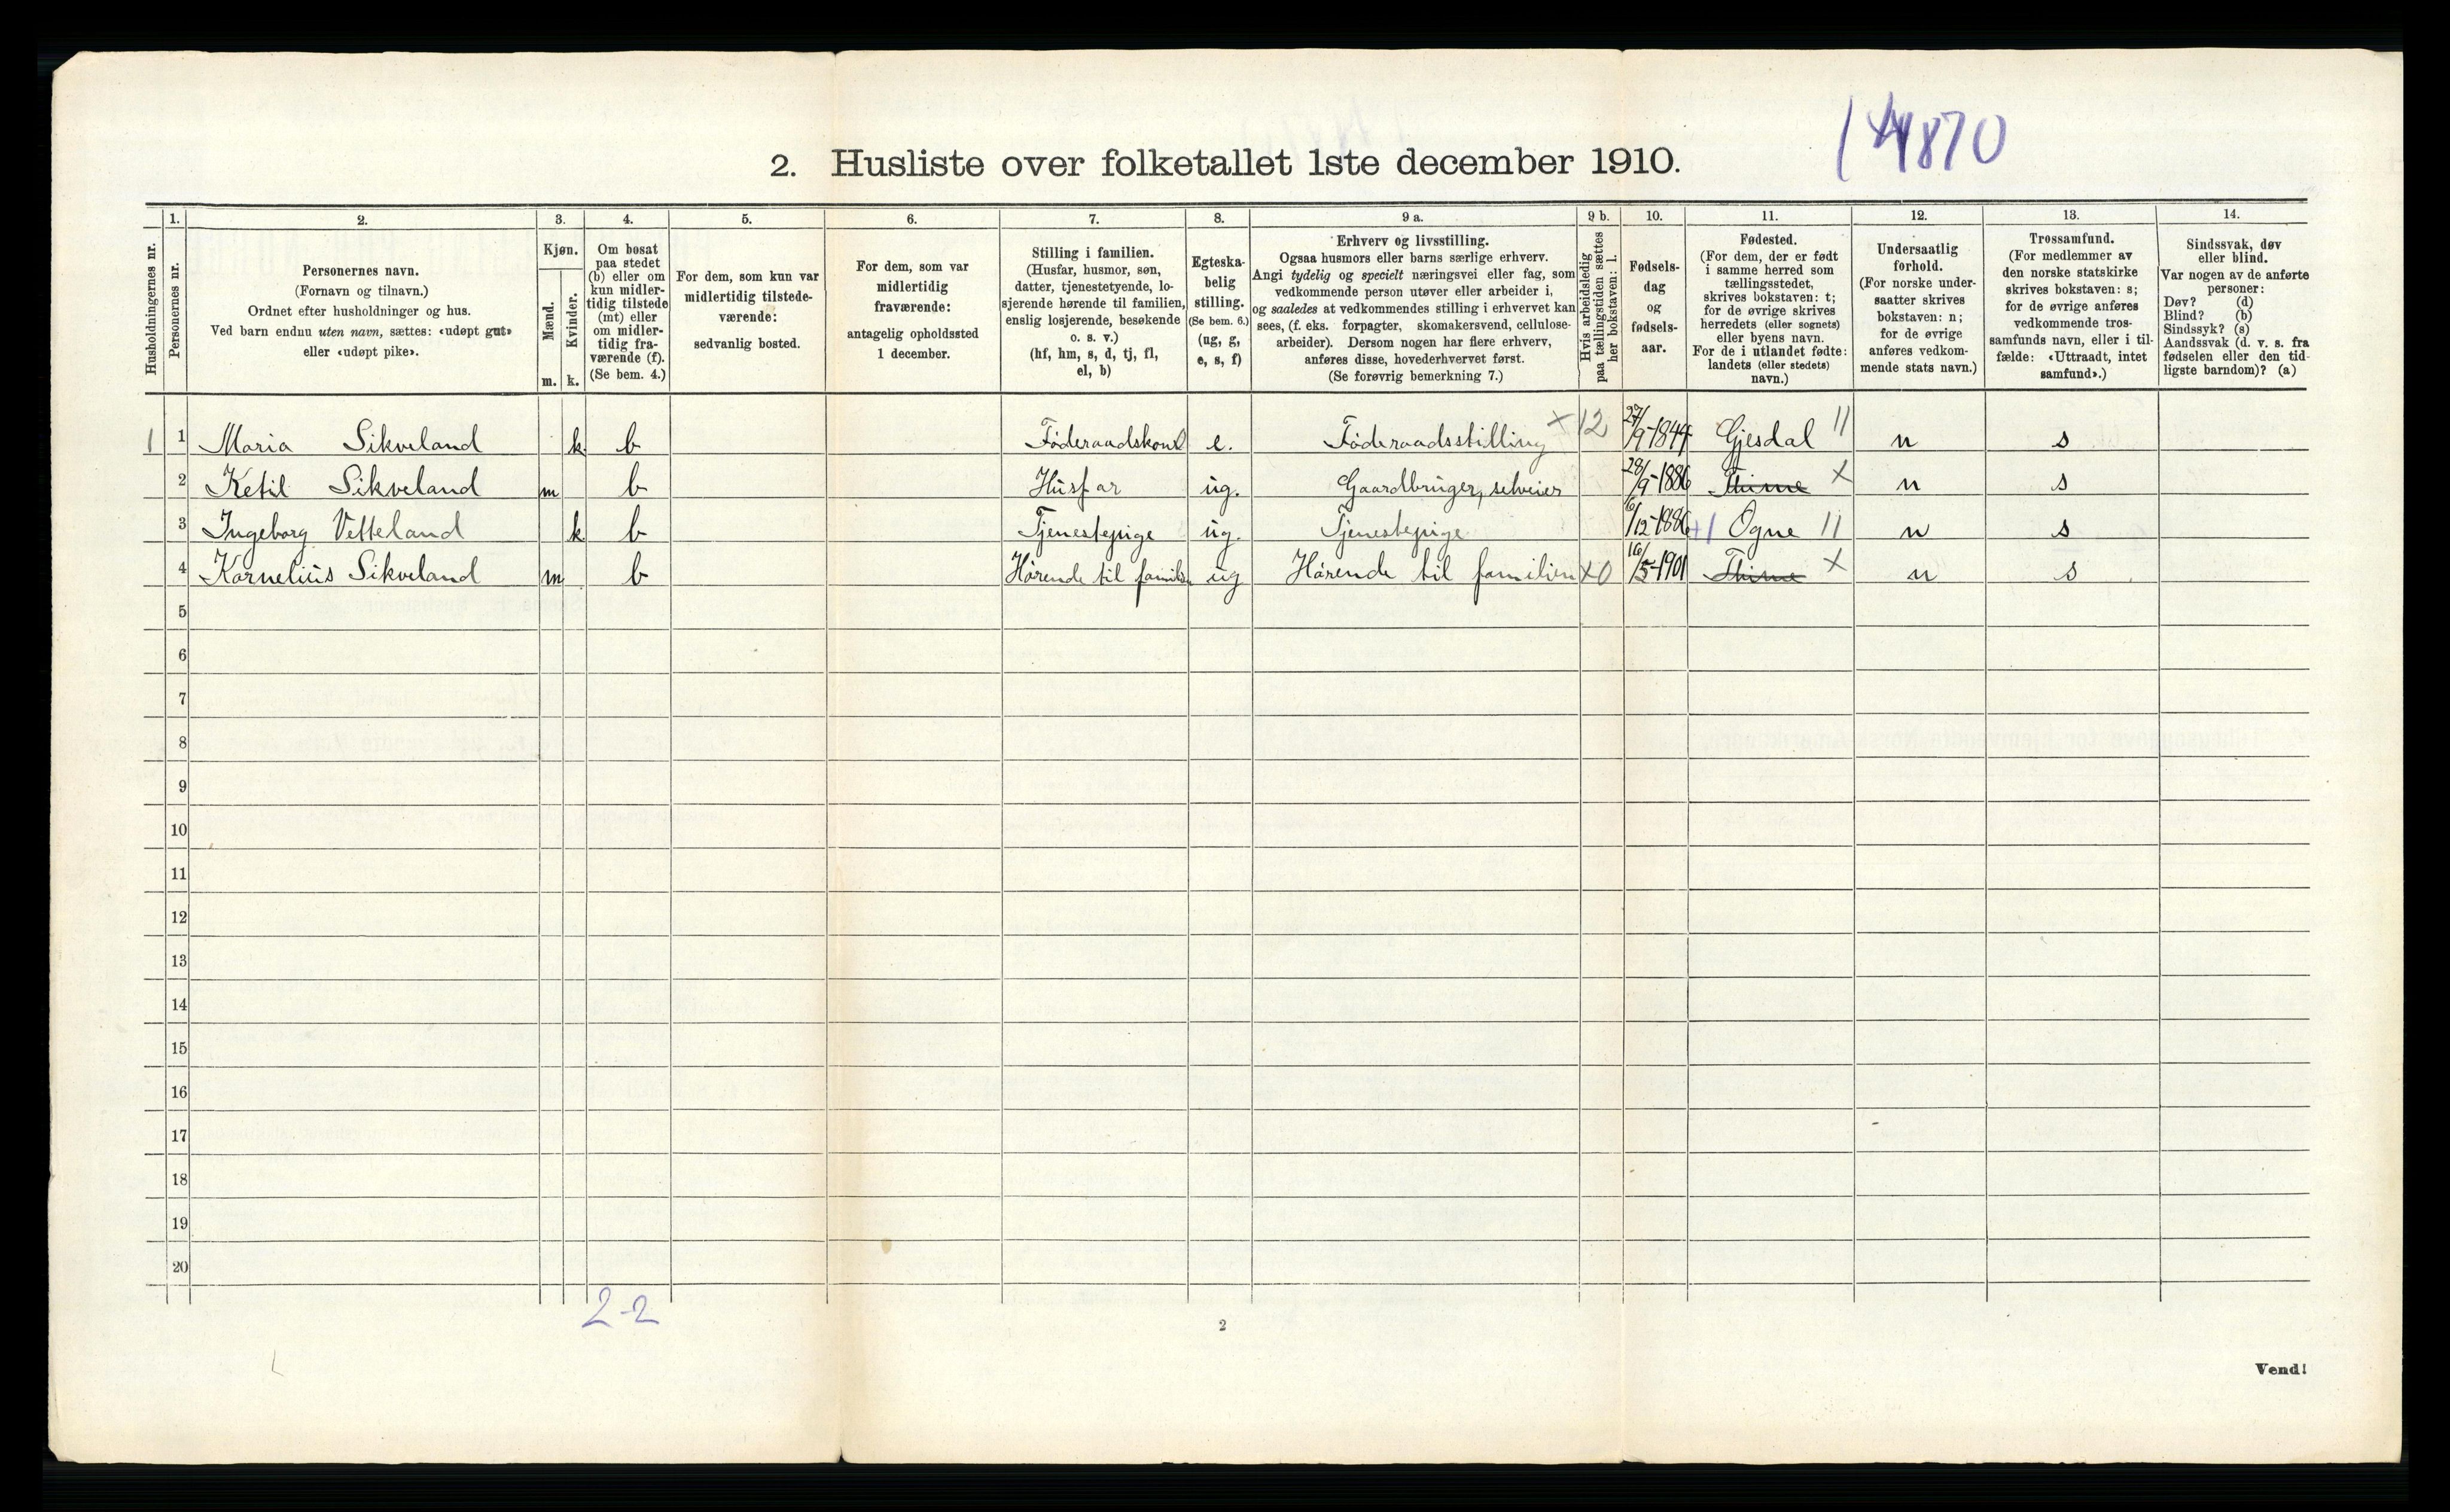 14870
2. Husliste over folketallet 1ste december 1910.
Husholdningernes nr.
1.
Personernes nr.
2.
Personernes navn.
(Fornavn og tilnavn.)
Ordnet efter husholdninger og hus.
Ved barn endnu uten navn, sættes: «udøpt gut»
eller «udøpt pike».
3.
Kjøn.
Mænd.
Kvinder.
m. k.
4.
Om bosat
paa stedet
(b) eller om
kun midler-
tidig tilstede
(mt) eller
om midler-
tidig fra-
værende (f).
(Se bem. 4.)
5.
For dem, som kun var
midlertidig tilstede-
værende:
sedvanlig bosted.
6.
For dem, som var
midlertidig
fraværende:
antagelig opholdssted
1 december.
7.
Stilling i familien.
(Husfar, husmor, søn,
datter, tjenestetyende, lo-
sjerende hørende til familien,
enslig losjerende, besøkende
o. s. v.)
(hf, hm, s, d, tj, fl,
el, b)
8.
Egteska-
belig
stilling.
(Se bem. 6.)
(ug, g,
e, s, f)
9 a.
Erhverv og livsstilling.
Ogsaa husmors eller barns særlige erhverv.
Angi tydelig og specielt næringsvei eller fag, som
vedkommende person utøver eller arbeider i,
og saaledes at vedkommendes stilling i erhvervet kan
sees, (f. eks. forpagter, skomakersvend, cellulose-
arbeider). Dersom nogen har flere erhverv,
anføres disse, hovederhvervet først.
(Se forøvrig bemerkning 7.)
9 b.
Hvis arbeidsledig
paa tællingstiden sættes
her bokstaven: l.
10.
Fødsels-
dag
og
fødsels-
aar.
11.
Fødested.
(For dem, der er født
i samme herred som
tællingsstedet,
skrives bokstaven: t;
for de øvrige skrives
herredets (eller sognets)
eller byens navn.
For de i utlandet fødte:
landets (eller stedets)
navn.)
12.
Undersaatlig
forhold.
(For norske under-
saatter skrives
bokstaven: n;
for de øvrige
anføres vedkom-
mende stats navn.)
13.
Trossamfund.
(For medlemmer av
den norske statskirke
skrives bokstaven: s;
for de øvrige anføres
vedkommende tros-
samfunds navn, eller i til-
fælde: «Uttraadt, intet
samfund».)
14.
Sindssvak, døv
eller blind.
Var nogen av de anførte
personer:
Døv? (d)
Blind? (b)
Sindssyk? (s)
Aandssvak (d. v. s. fra
fødselen eller den tid-
ligste barndom)? (a)
1 1 Maria Sikveland k. b Föderaadskone e. Föderaadsstilling x 12 27/9-1844 Gjesdal 11 n s
2 Ketil Sikveland m b Husfar ug. Gaardbruger, selveier 28/9-1886 Thime x n s
3 Ingeborg Vetteland k. b Tjenestepige ug. Tjenestepige 6/12-1886 +1 Ogne 11 n s
4 Kornelius Sikveland m b Hörende til familien ug Hörende til familien x0 16/5-1901 Thime x n s
5
6
7
8
9
10
11
12
13
14
15
16
17
18
19
20
2-2
2
Vend!